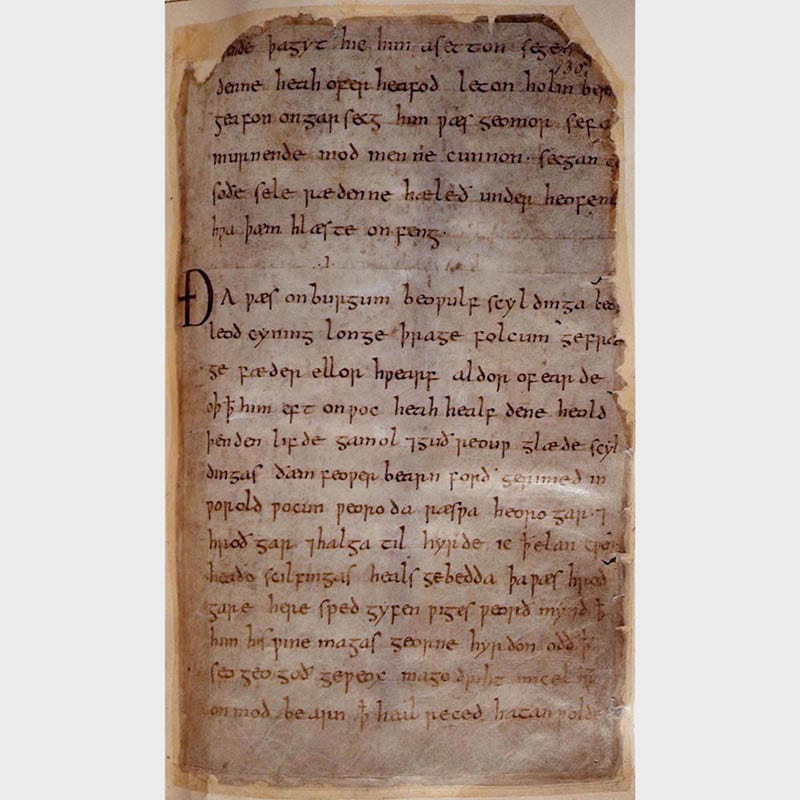 þagyt hie him asetton segen
denne heah ofer heafod leton holm ber
geafon ongarsecg him ƿæs geomor sefa
murnende mod men ne cunnon· secgan
soðe sele rædenne hæleð under heofen
hƿa þæm hlæste onfeng·
.I.
ÐA ƿæs onburgum beoƿulf scyldinga leo
leod cyning longe þrage folcum gefræ
ge fæder ellor hƿearf aldor of earde
oþꝥ him eft onƿoc heah healfdene heold
þenden lifde gamol ⁊guð reouƿ glæde scyl
dingas ðæm feoƿer bearn forð gerimed in
ƿorold ƿocun ƿeoroda ræsƿa heoro gar· ⁊
hroð gar ⁊halga til hyrde ic ꝥelan cƿen
heaðo scilfingas heals gebedda þa ƿæs hroð
gare here sped gyfen ƿiges ƿeorð mynd ꝥ
him his ƿine magas georne hyrdon oðð ꝥ
seo geo goð geƿeox mago driht micel
onmod bearn ꝥ heal reced hatan ƿolde